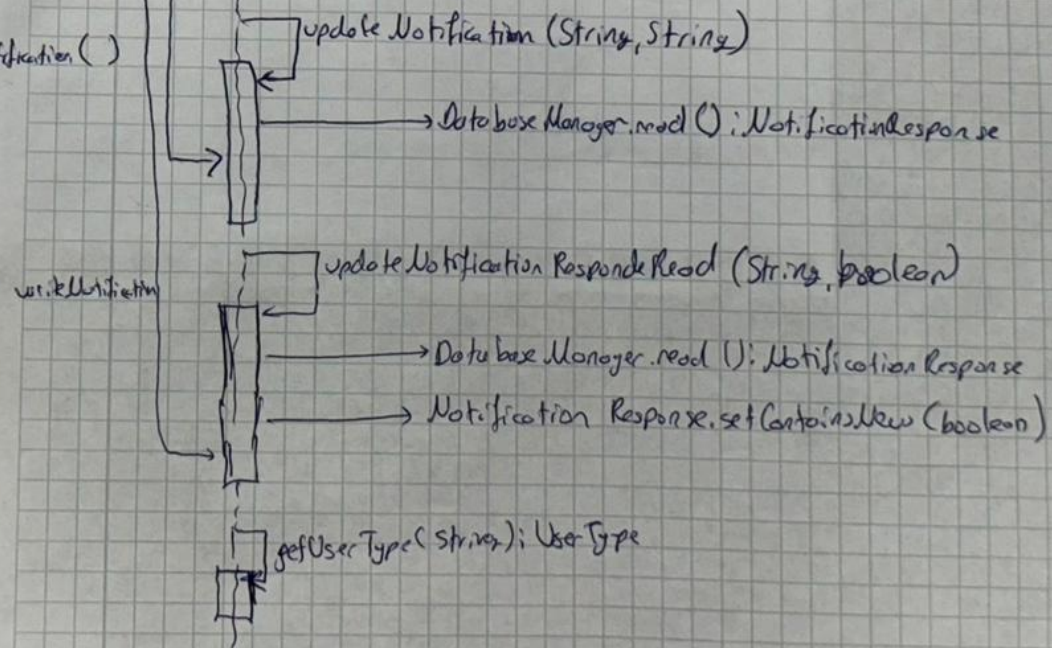 updateNotification (String, String)
ification ( )
DatabaseManager.read () : NotificationResponse
updateNotification RespondeRead (String, boolean)
writeNotification
DatabaseManager.read () : NotificationResponse
Notification Response.setContainsNew (boolean)
getUserType(String) : UserType